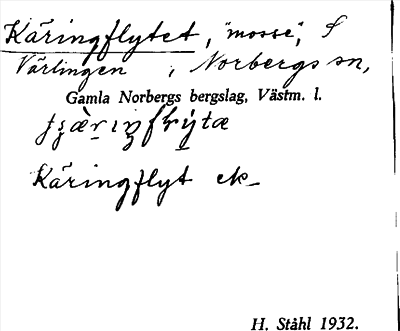 Käringflytet, "mosse", S
Värlingen, Norbergs sn,
Gamla Norbergs bergslag, Västm. l.
Käringflyt ek
H. Ståhl 1932.